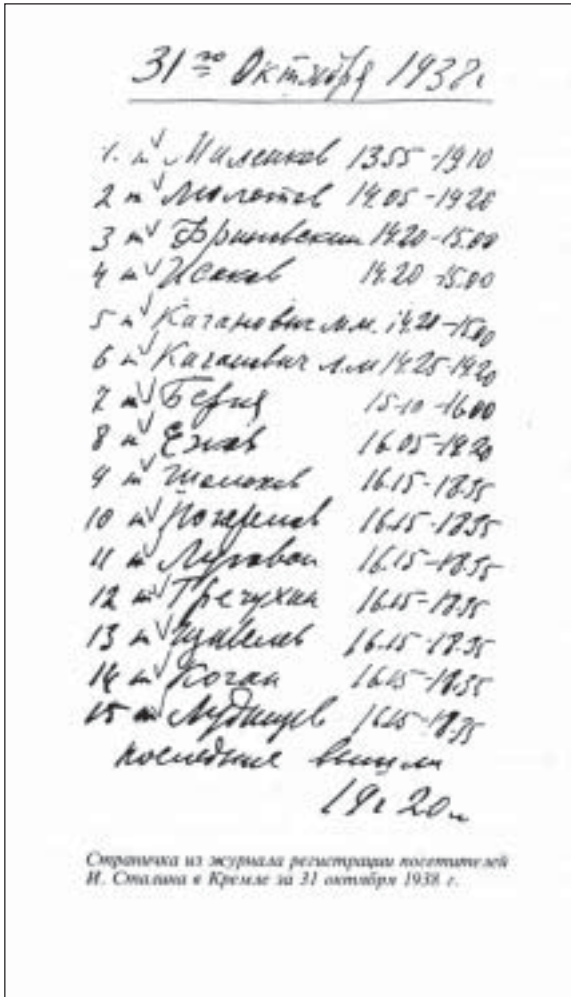 31го Октября 1938г
1. т Маленков 13.55-19.10
2 т Молотов 14.05-19.20
3 т Фриновский 14.20-15.00
4 т Исаков 14.20-15.00
5 т Каганович М.М. 14.20-15.00
6 т Каганович Л.М 14.25-19.20
7 т Берия 15-10-16.00
8 т Ежов 16.05-19.20
9 т Шолохов 16.15-18.35
10 т Погорелов 16.15-18.35
11 т Луговой 16.15-18.35
12 т Гречухин 16.15-18.35
13 т Щавелев 16.15-18.35
14 т Коган 16.15-18.35
15 т 16.15-18.35
последние вышли
19ч 20м
Страничка из журнала регистрации посетителей
И. Сталина в Кремле за 31 октября 1938 г.